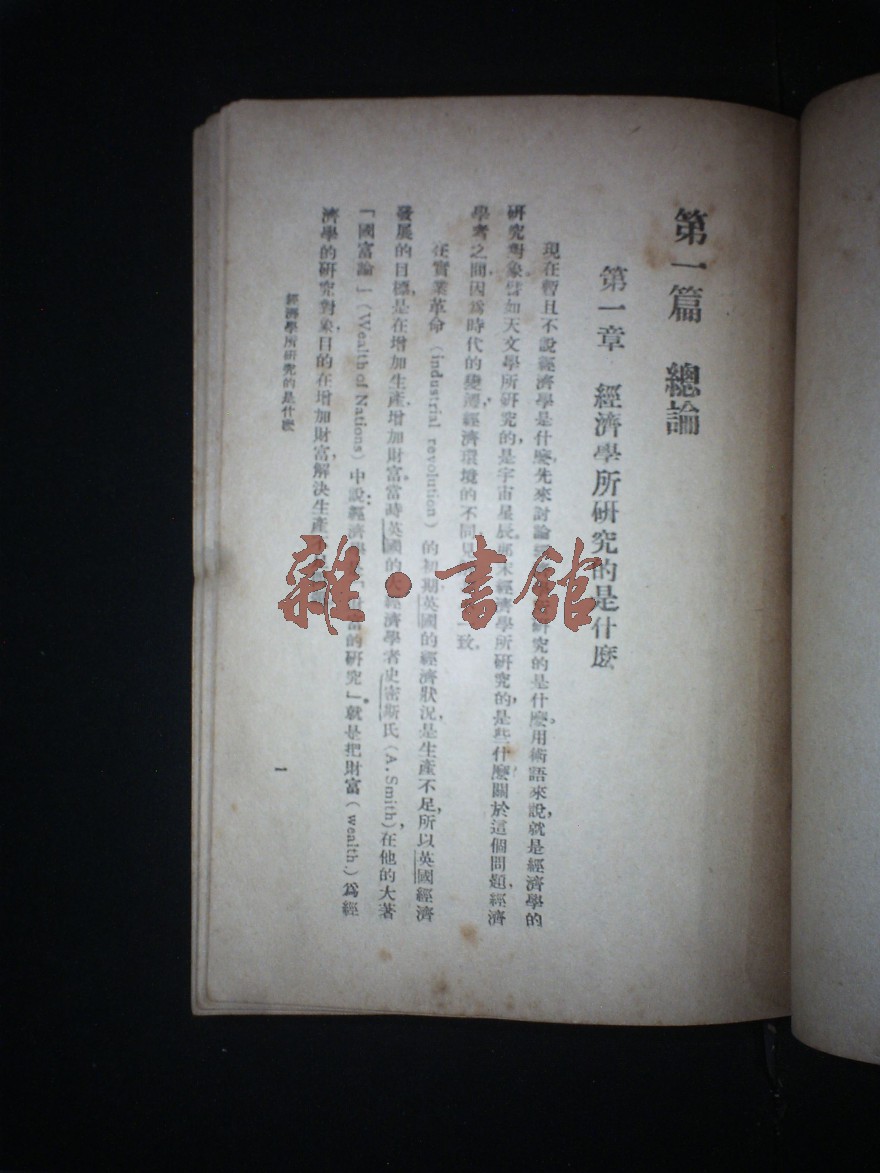 第一篇 總論
第一章 經濟學所研究的是什麼
現在暫且不說經濟學是什麼,先來討論 研究的是什麼。用術語來說,就是經濟學的
研究對象。譬如天文學所研究的,是宇宙星辰。 經濟學所研究的,是些什麼?關於這個問題,經濟
學者之間,因爲時代的變遷,經濟環境的不同, 一致。
在實業革命(industrial revolution)的初期,英國的經濟狀況,是生產不足,所以英國經濟
發展的目標,是在增加生產,增加財富。當時英國的大經濟學者史密斯氏(A. Smith)在他的大著
「國富論」(Wealth of Nations)中說:經濟學 的研究」就是把財富(wealth)爲經
濟學的研究對象,目的在增加財富,解決生產不
經濟學所研究的是什麼
一
雜·書館